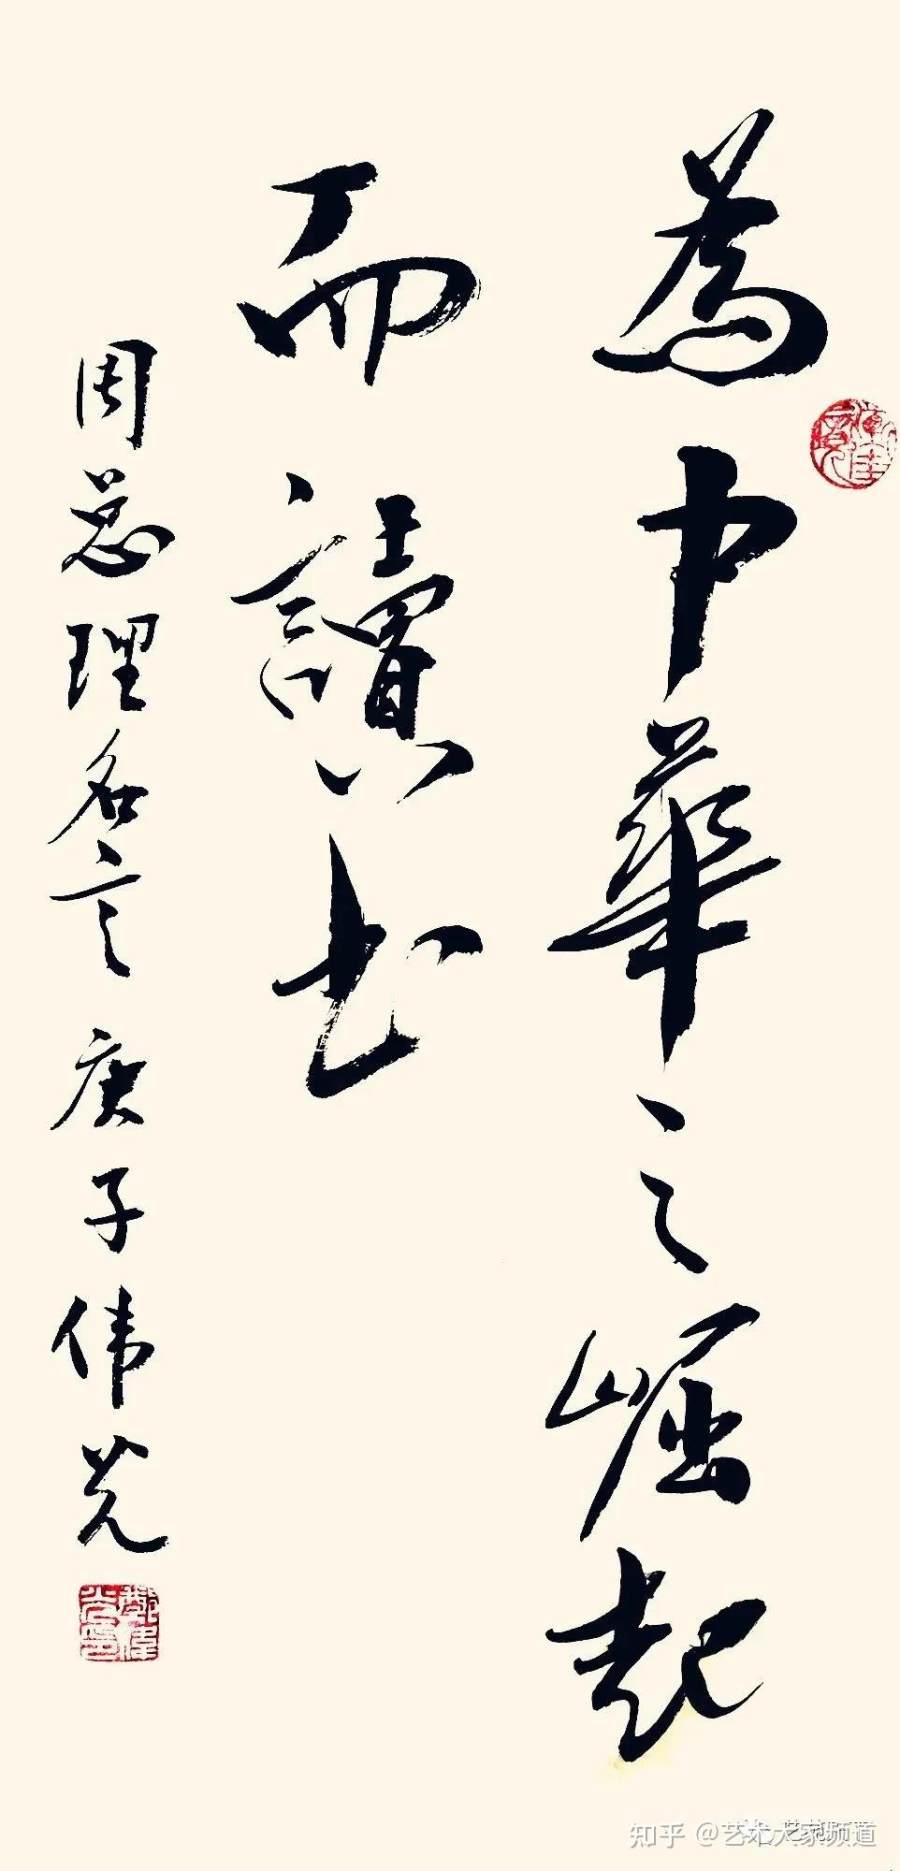 為中華之崛起
而讀书
周总理名言 庚子伟光
知乎 @艺术大家频道